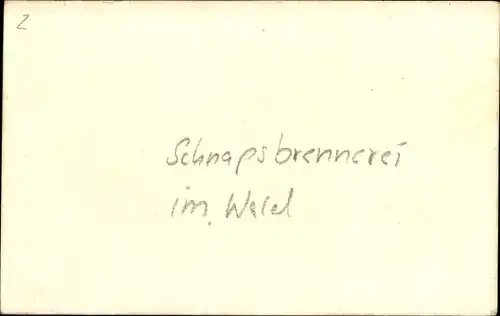 2
Schnapsbrennerei
im Wald